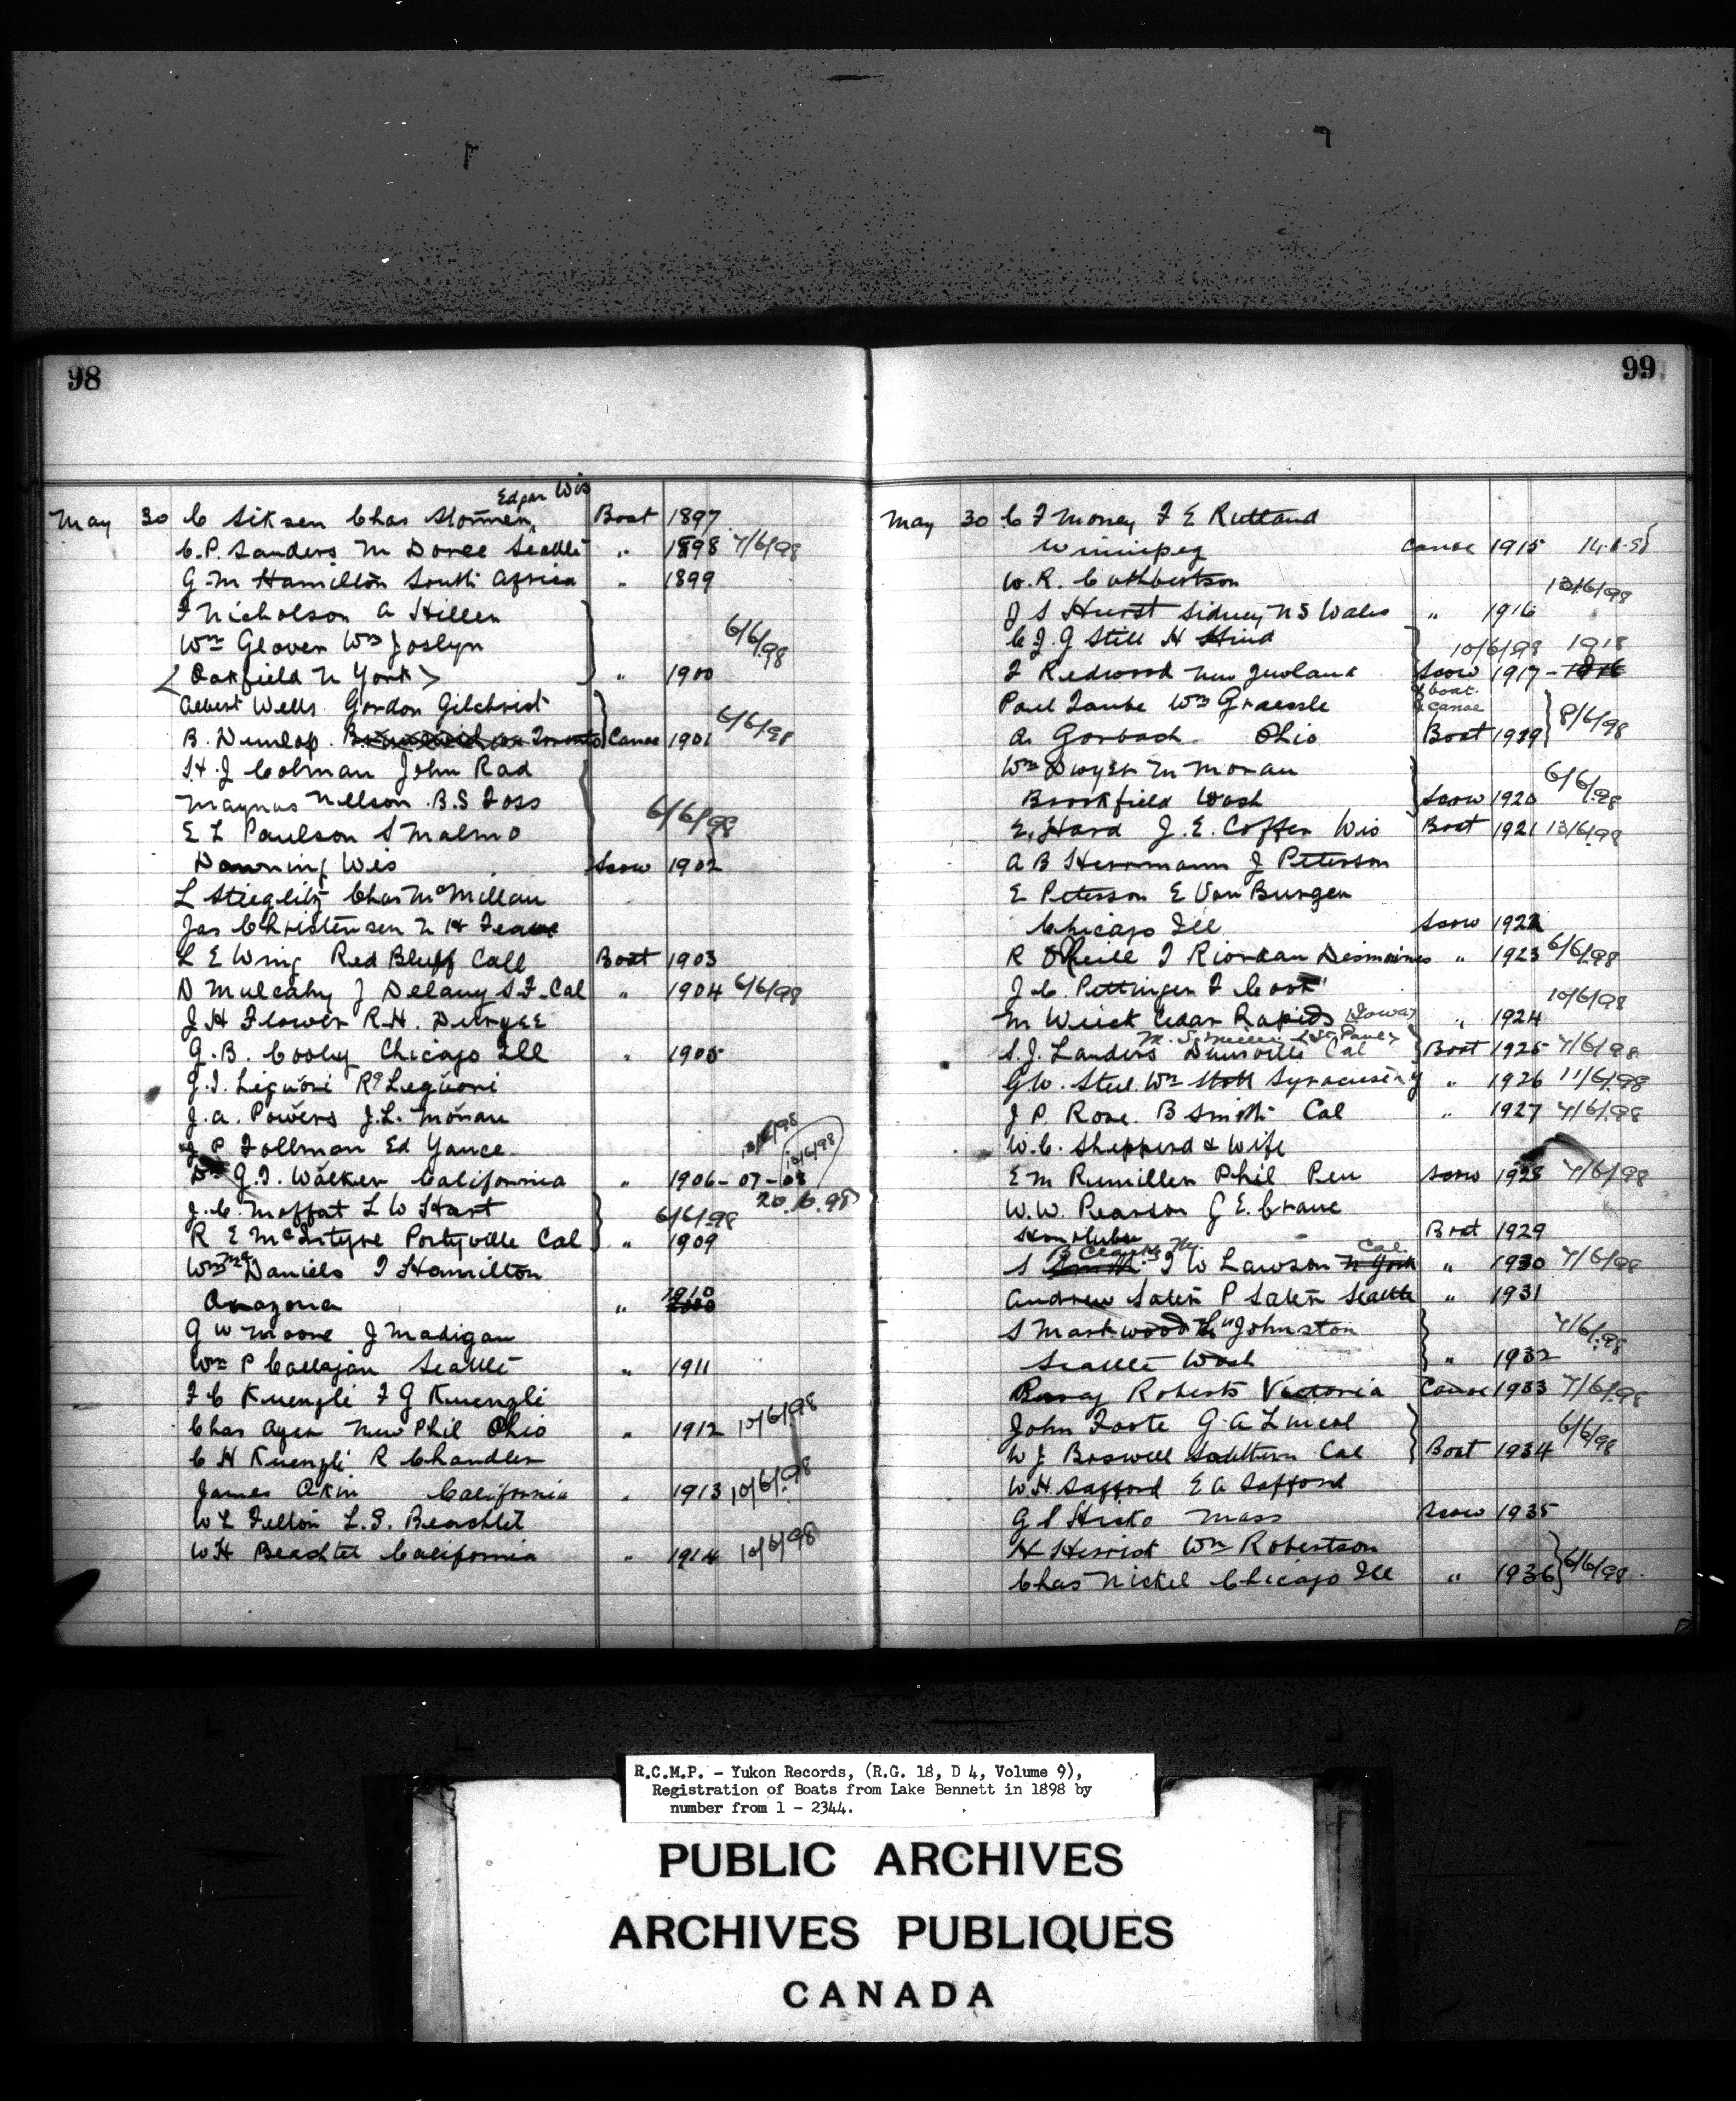 98
Edgar Wis
May 30 C Siksen Chas Stormen Boat 1897
C.P. Sanders M Doree Seattle " 1898 7/6/98
G.M Hamilton South Africa " 1899
F Nicholson A Hillen
Wm Glover Wm Joslyn 6/6/98
< Oakfield N York > " 1900
Albert Wells Gordon Gilchrist
B. Dunlop Toronto Canoe 1901 6/6/98
H.J Colman John Rad
Magnus Nelson B.S Foss
E L Paulson S Malmo 6/6/98
Downing Wis Scow 1902
L Stieglitz Chas McMillan
Jas Christensen N H
L E Wing Red Bluff Call Boat 1903
D Mulcahy J Delany S.F. Cal " 1904 6/6/98
J H Flower R.H. Duryee
G.B. Cooley Chicago Ill " 1905
J.I. Liguori Rd Leguori
J.A. Powers J.L. Moran
J P Follman Ed Yance 13/6/98 13/6/98
Dr G.I. Walker California " 1906 - 07 - 08
J.C. Moffat L W Hart 6/6/98 20.6.98
R E McIntyre Portyville Cal " 1909
Wm McDaniels I Hamilton
Anazona " 1910 2000
G W Moore J Madigan
Wm P Callajan Seattle " 1911
F C Kuengli F G Kuengli
Chas Ayer New Phil Ohio " 1912 10/6/98
C H Kuengli R Chandler
James Akin California " 1913 10/6/98
W L Felton L.S. Beachtel
W H Beachtel California " 1914 10/6/98
99
May 30 C F Money F E Rutland
Winnipeg Canoe 1915 14.6.98
W.R. Cuthbertson 13/6/98
J S Hurst Sidney N S Wales " 1916
C J.G Still H Hind 10/6/98 1918
F Redwood New Zealand Scow 1917 -
& boat
& Canoe
Paul Taube Wm Graessle
A. Gorbach Ohio Boat 1919 8/6/98
Wm Dwyer M Moran 6/6/98
Brookfield Wash Scow 1920
E. Hard J.E. Coffen Wis Boat 1921 13/6/98
A B Herrmann J Peterson
E Peterson E Van Burgen
Chicago Ill Scow 1922
R O'Neill T Riordan Desmoines " 1923 6/6/98
J.C. Pettinger F Cook 10/6/98
M Wuick Cedar Rapids (Iowa) " 1924
<St Paul>
S.J. Landers Dunsville Cal Boat 1925 7/6/98
G W. Steel Wm Stoll Syracuse N Y " 1926 11/6/98
J P. Rose B Smith Cal " 1927 7/6/98
W.C. Shepperd & Wife
E M Rumiller Phil Pen Scow 1928 7/6/98
W.W. Pearson G E. Crane
Honolulu Boat 1929
B Clarke Cal
S Smith I W Lawson N York " 1930 7/6/98
Andrew Salen P Salen Seattle " 1931
S Markwood Johnston 7/6/98
Seattle Wash " 1932
Roberts Victoria Canoe 1933 7/6/98
John Foote G A Lineal 6/6/98
W J Boswell Southern Cal Boat 1934
W.H. Safford E A Safford
G S Hicks Mass Scow 1935
H Herrick Wm Robertson
Chas Nickel Chicago Ill " 1936 6/6/98
R.C.M.P. - Yukon Records, (R.G. 18, D 4, Volume 9),
Registration of Boats from Lake Bennett in 1898 by
number from 1 - 2344.
PUBLIC ARCHIVES
ARCHIVES PUBLIQUES
CANADA